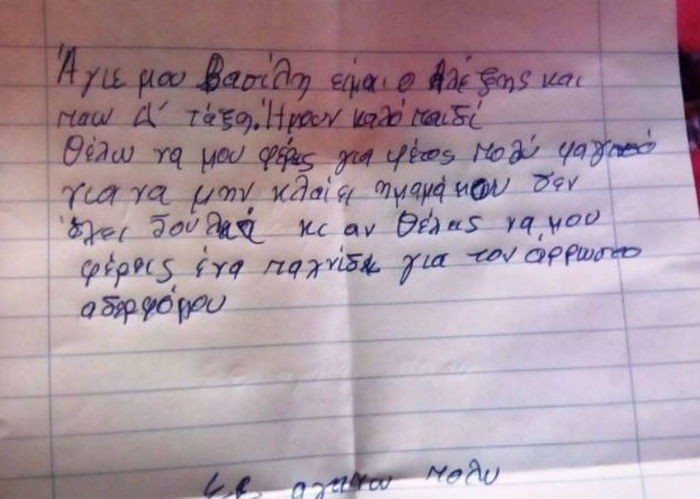 Άγιε μου Βασίλη είμαι ο Αλέξης και
παω Δ' τάξη. Ήμουν καλό παιδί
Θέλω να μου φέρεις για φέτος πολύ φαγητό
για να μην κλαίει ημαμά μου δεν
έχει δουλειά κι αν θέλεις να μου
φέρεις ένα παχνίδι για τον άρρωστο
αδερφόμου
Σε αγαπω πολυ